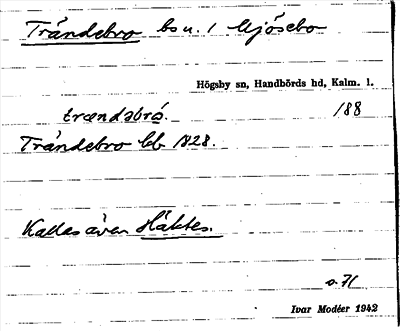 Tråndebro bs u. 1 Mjösebo
Högsby sn, Handbörds hd, Kalm. l.
trændəbró. 188
Tråndebro kb 1828.
Kallas även Häktes.
o. 71
Ivar Modéer 1942